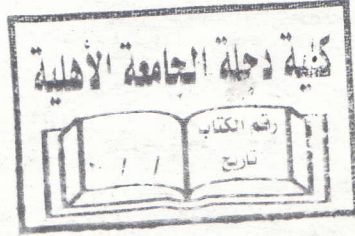 كلية دجلة الجامعة الأهلية
رقم الكتاب
تاريخ / /